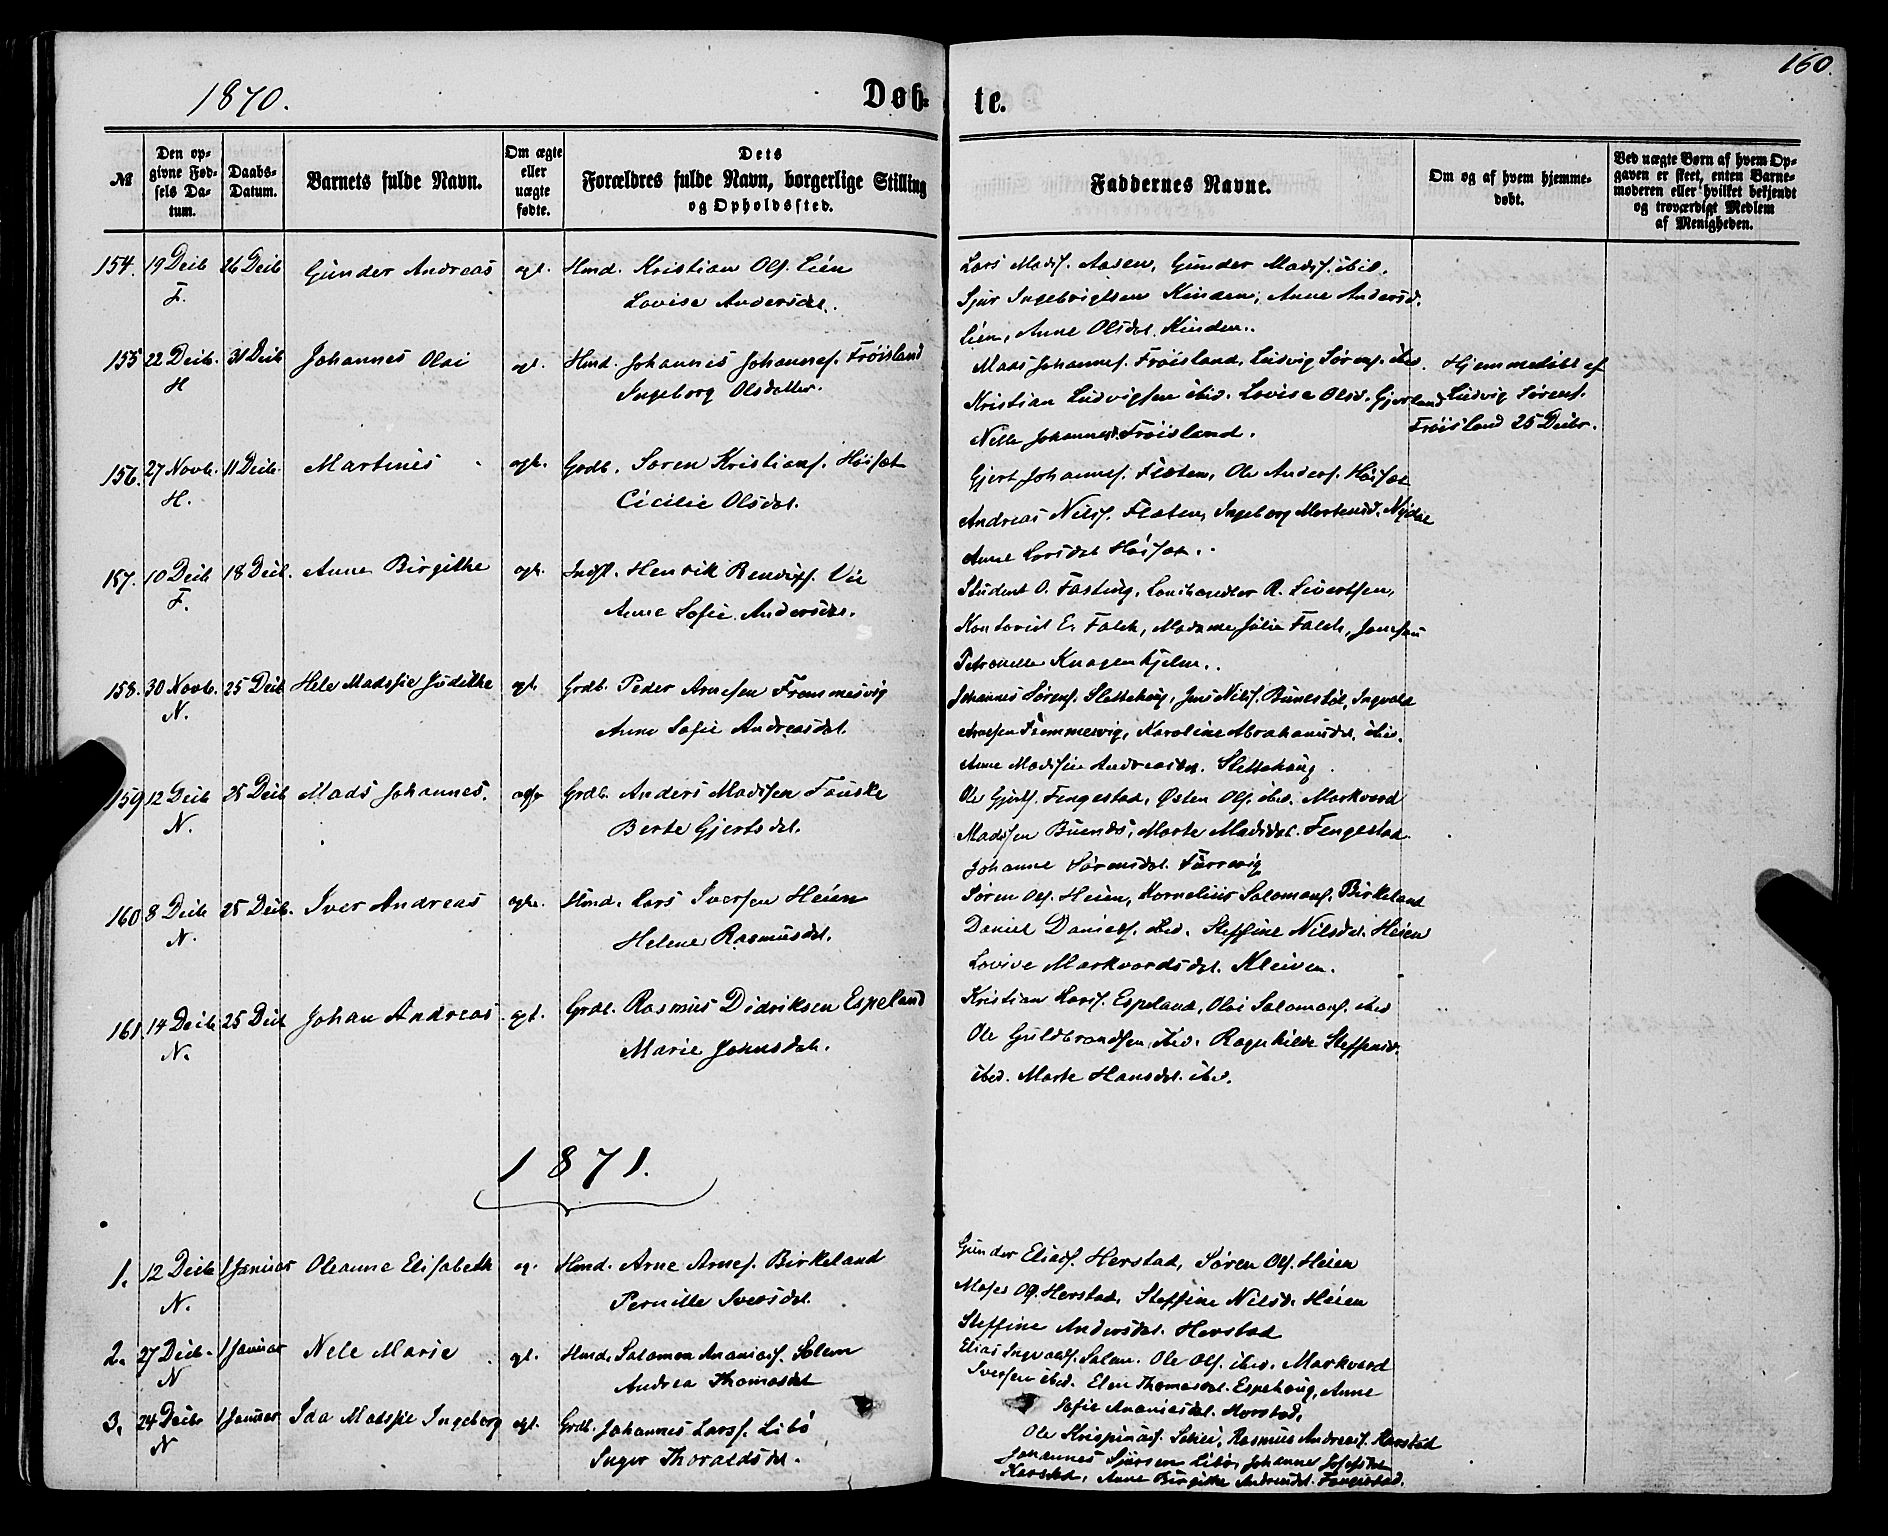 160.
1870.
Døb- te.
№
Den op-
givne Fød-
sels Da-
tum.
Daabs-
Datum.
Barnets fulde Navn.
Om ægte
eller
uægte
fødte.
Dets
Forældres fulde Navn, borgerlige Stilling
og Opholdssted.
Faddernes Navne.
Om og af hvem hjemme-
døbt.
Ved uægte Børn af hvem Op-
gaven er skeet, enten Barne-
moderen eller hvilket bekjendt
og troværdigt Medlem
af Menigheden.
154. 19 Decb 26 Decb Gunder Andreas Hmd. Kristian Ols. Lien
F. Lovise Andersdt.
Lars Mads. Aasen, Gunder Mads. ibid.
Sjur Ingebrigtsen Kinden, Anne Andersd.
Lien, Anne Olsdt. Kinden.
155 22 Decb. 31 Decb Johannes Olai Hmd. Johannes Johannes. Frøisland
H Ingeborg Olsdatter.
Mads Johannes. Frøisland, Ludvig Sørens. ibd.
Kristian Ludvigsen ibid. Lovise Olsd. Gjerland
Nelle Johannesd. Frøisland.
Hjemmedøbt af
Ludvig Sørens.
Frøisland 25 Decbr.
156. 27 Novb. 11 Decb. Martinus Grdb. Søren Kristians. Høisæt
H. Cicilie Olsdat.
Gjert Johannes. Flaten, Ole Anders. Høisæt
Andreas Nils. Flaten, Ingeborg Mortensd.
Anne Larsdat Høisæt.
157. 10 Decb 18 Decb. Anne Birgithe Indst. Henrik Vie
F. Anne Sofie Andersdt.
Student O. Fasting, Landhandler R. Sivertsen,
Kontorist E. Falch, Madame Julie Falch, Jomfru
Petronelle Knagenhjelm.
158. 30 Novb. 25 Decb Nele Madssie Judithe Grdb. Peder Arnesen Frammesvig
N. Anne Sofie Andreasdat.
Johannes Sørens. Slettehaug, Jens Nils. Ingvald
Arnesen Frammesvig, Karoline Abrahamsdt. ibid.
Anne Madssie Andreasdat. Slettehaug.
159 12 Decb 25 Decb Mads Johannes. Grdb. Anders Madssen Fauske
N. Berte Gjertsdat.
Ole Gjerts. Fengestad, Østen Ols. ibid. Markvard
Madssen Buenes, Marte Madsdat. Fengestad
Johanne Sørensdat. Farrevig
160 8 Decb 25 Decb. Iver Andreas Hmd. Lars Iversen Heien
N. Helene Rasmusdt.
Søren Ols. Heien, Kornelius Salomons. Birkeland
Daniel Daniels. ibid. Steffine Nilsdt. Heien
Lovise Markvardsdat. Kleiven.
161. 14 Decb 25 Decb Johan Andreas Grdb. Rasmus Didriksen Espeland
N. Marie Jensdat.
Kristian Lars. Espeland, Olai Salomons. ibid
Ole Guldbrandsen, ibid. Ragnhilde Steffensd.
ibid. Marte Hansdat. ibid.
1871.
1. 12 Decb 1 Januar Oleanne Elisabeth Hmd. Arne Arnes. Birkeland
N. Pernille Iversdat.
Gunder Elias. Herstad, Søren Ols. Heien
Moses Ols. Herstad, Steffine Nilsd. Heien
Steffine Andersdat. Herstad
2. 27 Decb. 1 Januar Nele Marie Hmd. Salomon Ananias. Solem
N Andrea Thomasdat
Elias Ingvalds. Solem. Ole Ols. ibid. Markvard
Iversen ibid. Elen Thomasdat. Espehaug, Anne
Sofie Ananiasdat. Herstad.
3. 24 Decbr 1 Januar Ida Madssie Ingeborg Grdb. Johannes Lars. Libø
N Inger Thoraldsdt.
Ole Krispinas. Rasmus Andreas. Herstad
Johannes Sjursen Libø, Johanne Josefsdat
Herstad, Anne Birgithe Andreasdt. Fengestad.